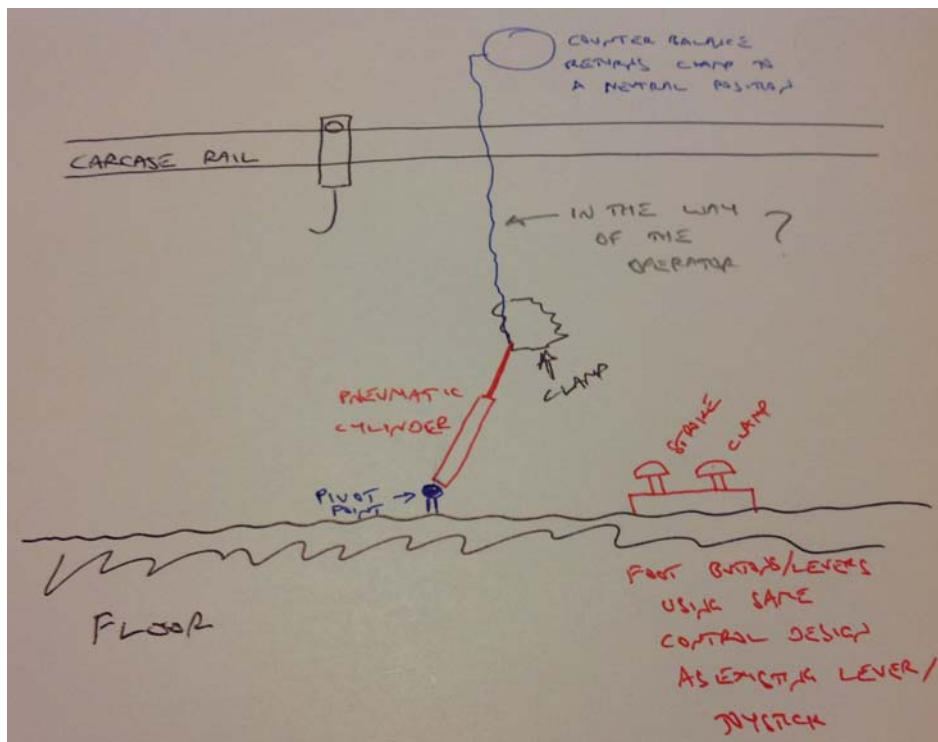 COUNTER BALANCE
RETURNS CLAMP TO
A NEUTRAL POSITION
CARCASE RAIL
IN THE WAY
OF THE
OPERATOR
?
CLAMP
PNEUMATIC
CYLINDER
STRIKE
CLAMP
PIVOT
POINT
FOOT BUTTONS/LEVERS
USING SAME
CONTROL DESIGN
AS EXISTING LEVER/
JOYSTICK
FLOOR